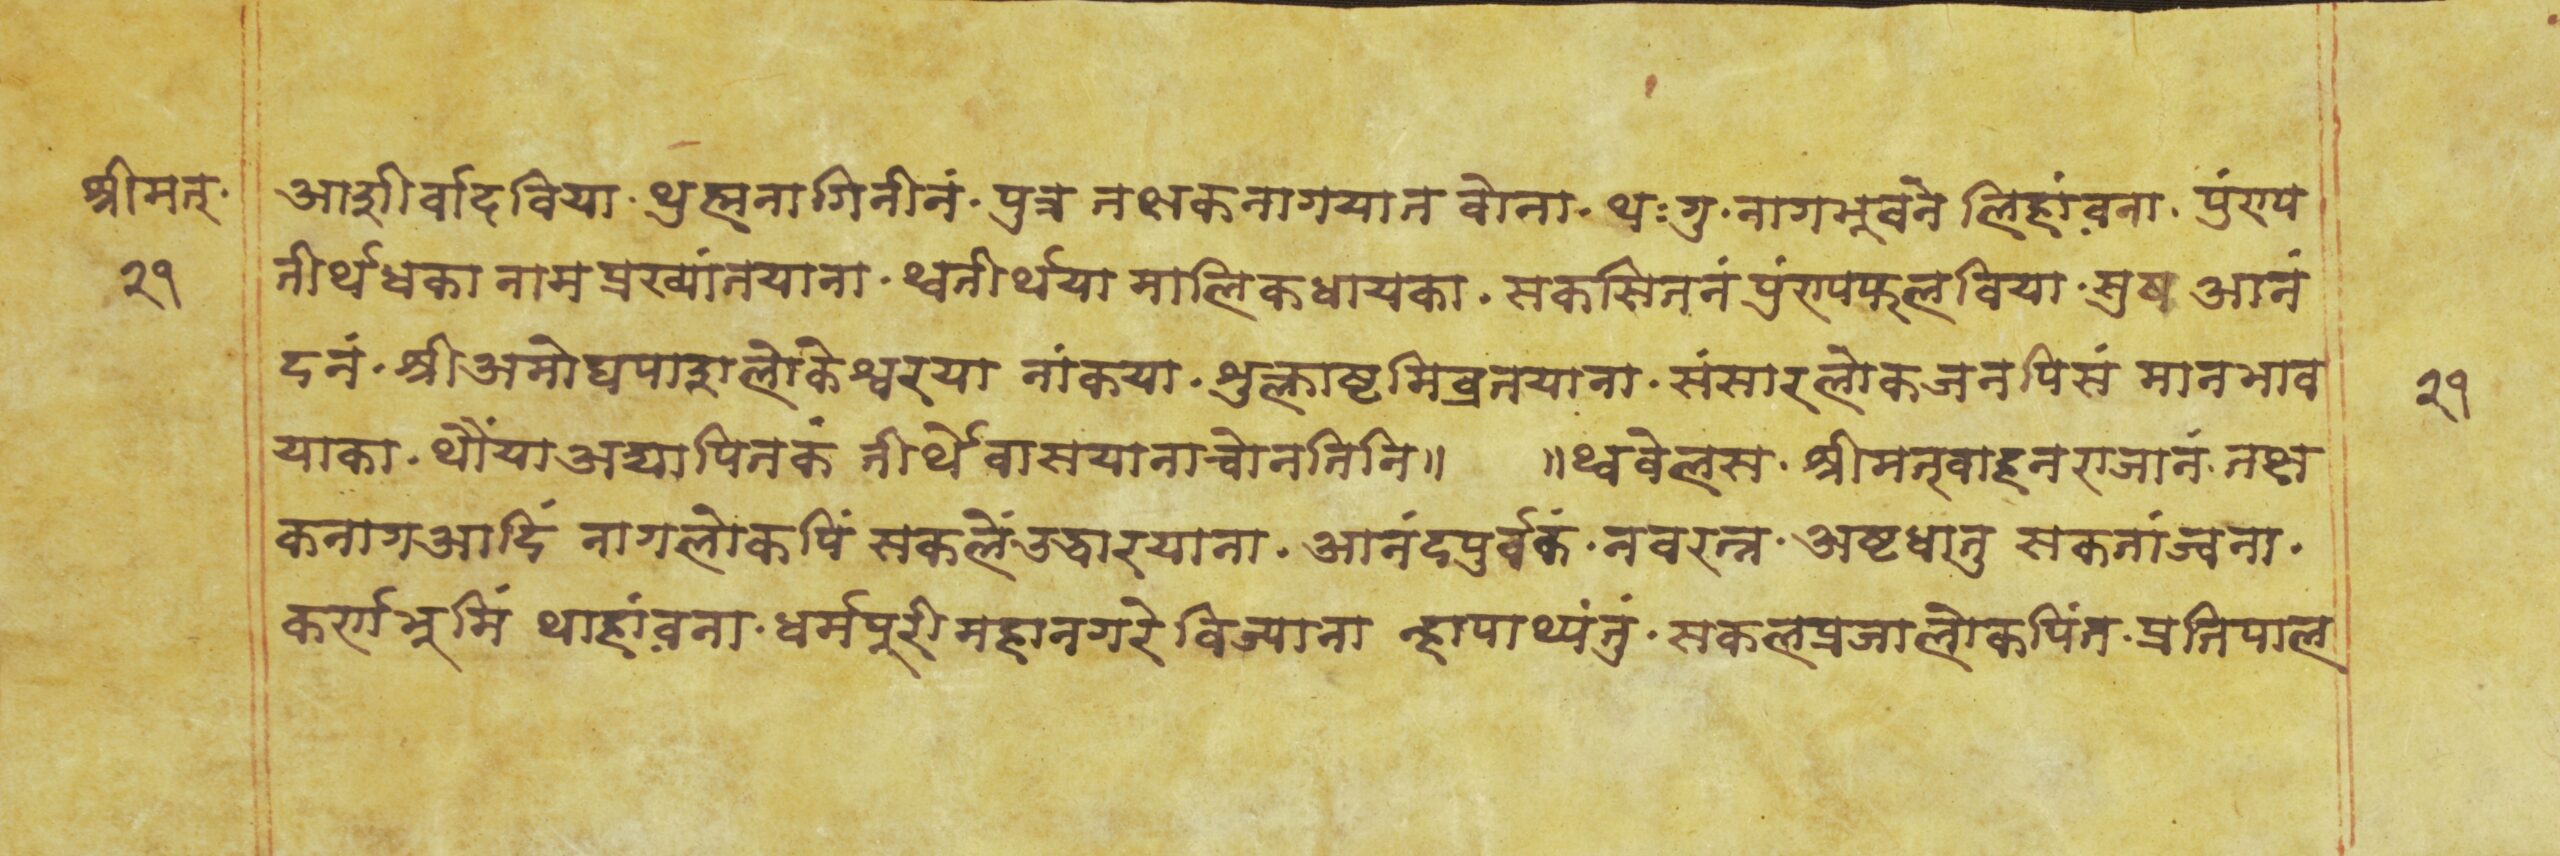 श्रीमत्· आशीर्वादविया· थुह्मनागिनीनं· पुत्र तक्षकनागयात वोना· थःगु· नागभूवने लिहांवना· पुंण्य
२१ तीर्थधका नाम प्रख्यांतयाना· थ्वतीर्थया मालिकधायका· सकसितनं पुंण्यफलविया· सुष आनं
दनं· श्रीअमोघपाशलोकेश्वरया नांकया· शुक्लाष्टमिव्रतयाना· संसारलोकजनपिसं मानभाव २१
याका· थौंया अद्यापितकं तीर्थे वासयानाच्वोनतिनि॥ ॥थ्ववेलस· श्रीमत्वाहनराजानं· तक्ष
कनागआदिं नागलोकपिं सकलें उद्धारयाना· आनंदपुर्वकं· नवरत्न· अष्टधातु सकतांज्वना·
कर्णभुमिं थाहांवना· धर्मपुरी महानगरे विज्याना न्हापाथ्यंतुं· सकलप्रजालोकपिंत· प्रतिपाल